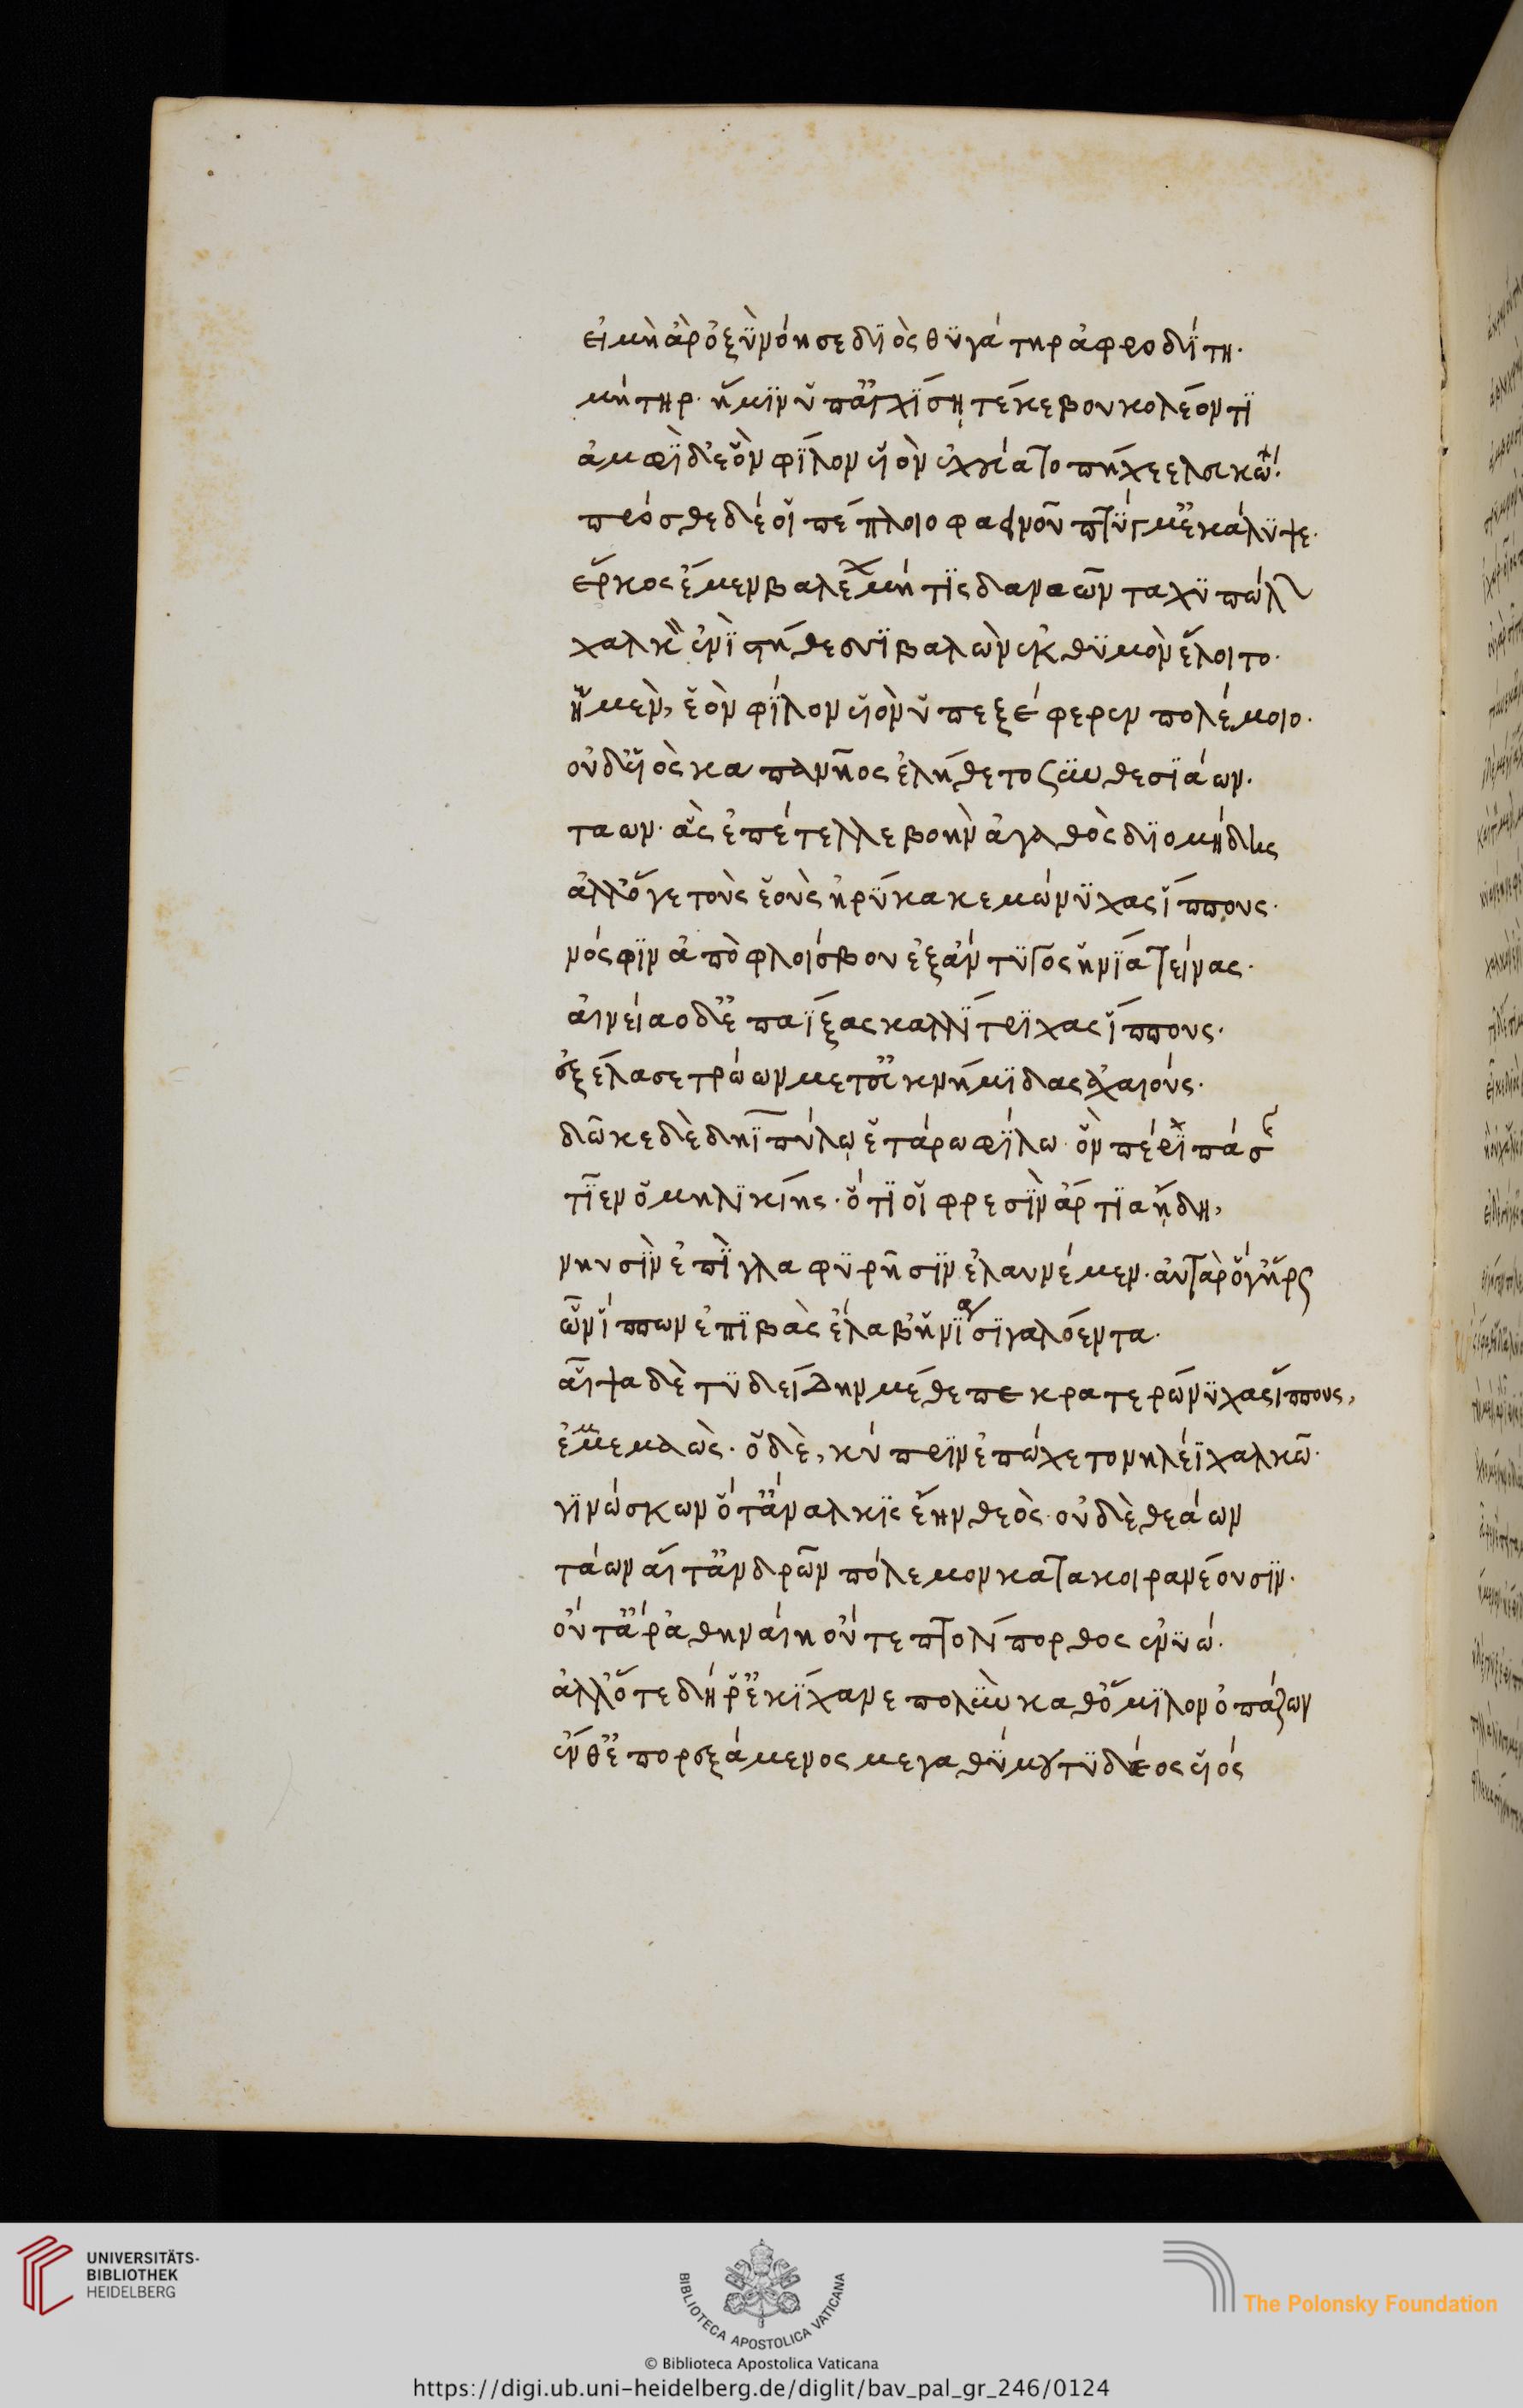 εἰ μὴ ἀρ ὀξὺ νόησε διὸς θυγάτηρ ἀφροδίτη·
μήτηρ· ἥ μιν ὑπ' ἀγχίσῃ τέκε βουκολέοντι
ἀμφὶ δ' ἑὸν φίλον υἱὸν ἐχεύατο πήχεε λευκώ·
πρόσθε δέ οἱ πέπλοιο φαεινοῦ πτύγμ' ἐκάλυψε·
ἕρκος ἔμεν βαλέων μή τις δαναῶν ταχυπώλων
χαλκὸν ἐνὶ στήθεσσι βαλὼν ἐκ θυμὸν ἕλοιτο·
ἡ μὲν, ἑὸν φίλον υἱὸν ὑπεξέφερεν πολέμοιο·
οὐδ' υἱὸς καπανῆος ἐλήθετο συνθεσιάων·
ταων· ἃς ἐπέτελλε βοὴν ἀγαθὸς διομήδης
ἀλλ' ὅγε τοὺς ἑοὺς ἠρύκακε μώνυχας ἵππους·
νόσφιν ἀπὸ φλοίσβου ἐξ ἄντυγος ἡνία τείνας·
αἰνείαο δ' ἐπαΐξας καλλίτριχας ἵππους·
ἐξέλασε τρώων μετ' ἐϋκνήμιδας ἀχαιούς·
δῶκε δὲ δηϊπύλῳ ἑτάρω φίλω· ὃν πέρι πάσης
τῖεν ὁμηλικίης· ὅτι οἱ φρεσὶν ἄρτια ᾔδη,
νηυσὶν ἐπὶ γλαφυρῆσιν ἐλαυνέμεν· αὐτὰρ ὅγ' ἥρως
ὧν ἵππων ἐπιβὰς ἔλαβ' ἡνία σιγαλόεντα·
αἶψα δὲ τυδείδην μέθεπε κρατερώνυχας ἵππους,
ἐμμεμαώς· ὁ δὲ, κύπριν ἐπώχετο νηλέϊ χαλκῶ·
γινώσκων ὅτ' ἄναλκις ἔην θεὸς· οὐδὲ θεάων
τάων αἵτ' ἀνδρῶν πόλεμον κατακοιρανέουσιν·
οὔτ' ἄρ' ἀθηναίη οὔτε πτολίπορθος ἐνυώ·
ἀλλ' ὅτε δή ῥ' ἐκίχανε πολὺν καθ' ὅμιλον ὀπάζων
ἔνθ' ἐπορεξάμενος μεγαθύμου τυδέος υἱός
UNIVERSITÄTS-
BIBLIOTHEK
HEIDELBERG
BIBLIOTECA APOSTOLICA VATICANA
The Polonsky Foundation
© Biblioteca Apostolica Vaticana
https://digi.ub.uni-heidelberg.de/diglit/bav_pal_gr_246/0124